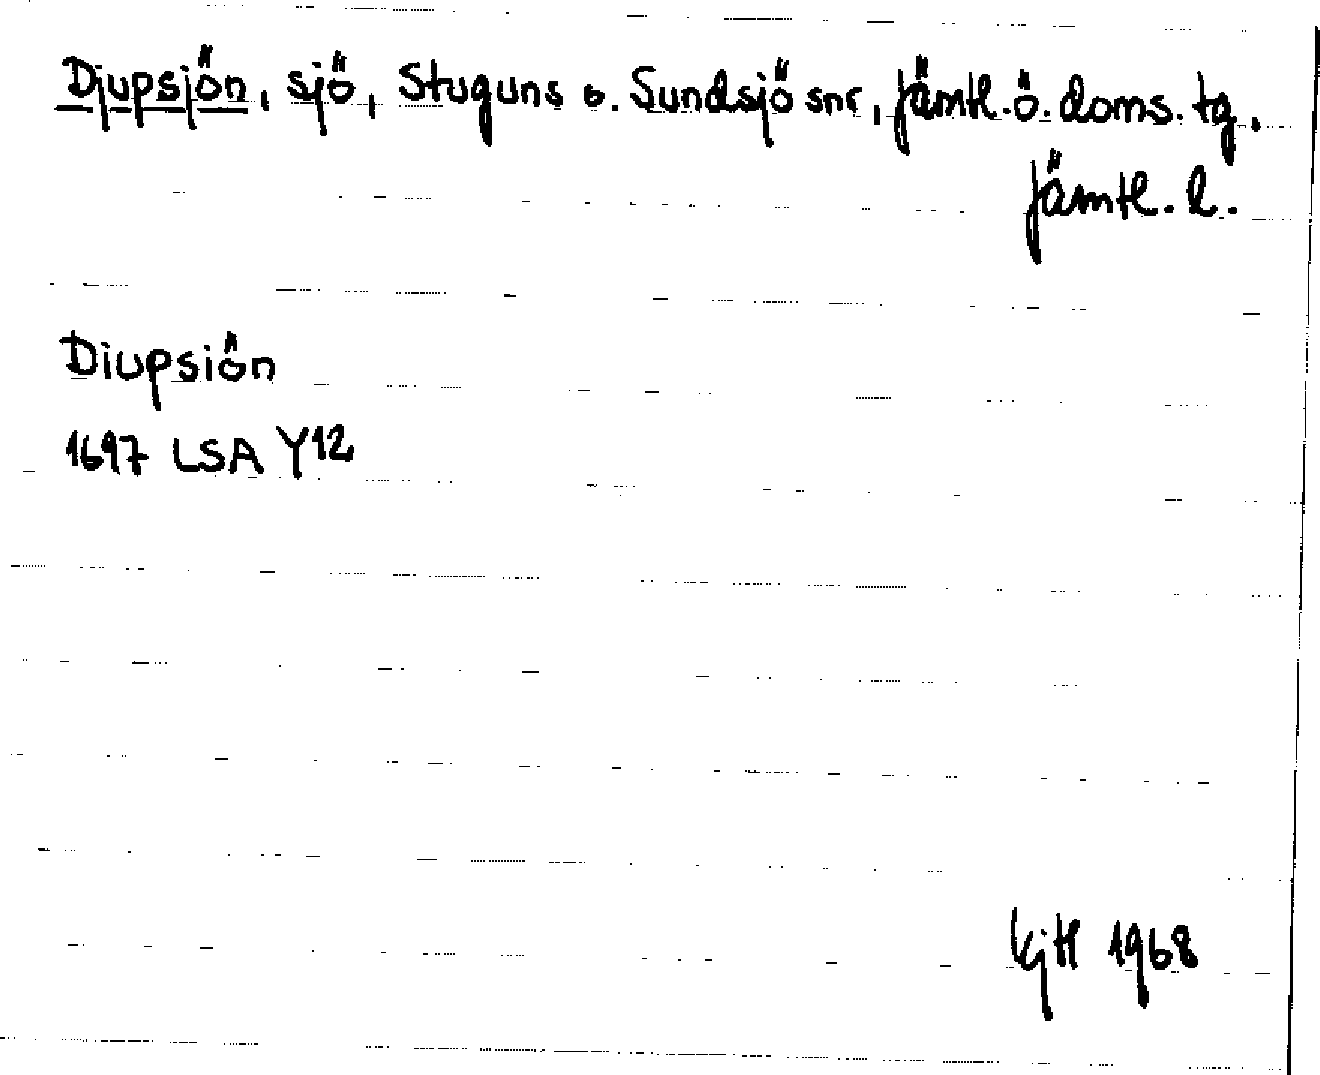 Djupsjön, sjö, Stuguns o. Sundsjö snr, Jämtl. ö. doms. tg.
Jämtl. l.
Diupsiön
1697 LSA Y12
1968